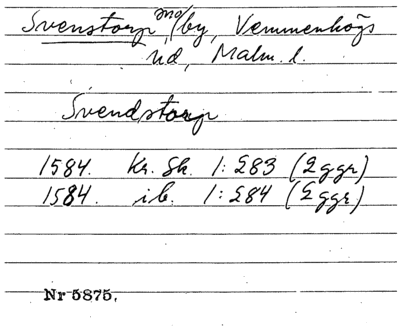 Svenstorp, by, Vemmenhögs
hd, Malm. l.
Svendstorp
1584. Kr. Sk. 1: 283 (2 ggr)
1584. ib. 1: 284 (2 ggr)
Nr 5875.